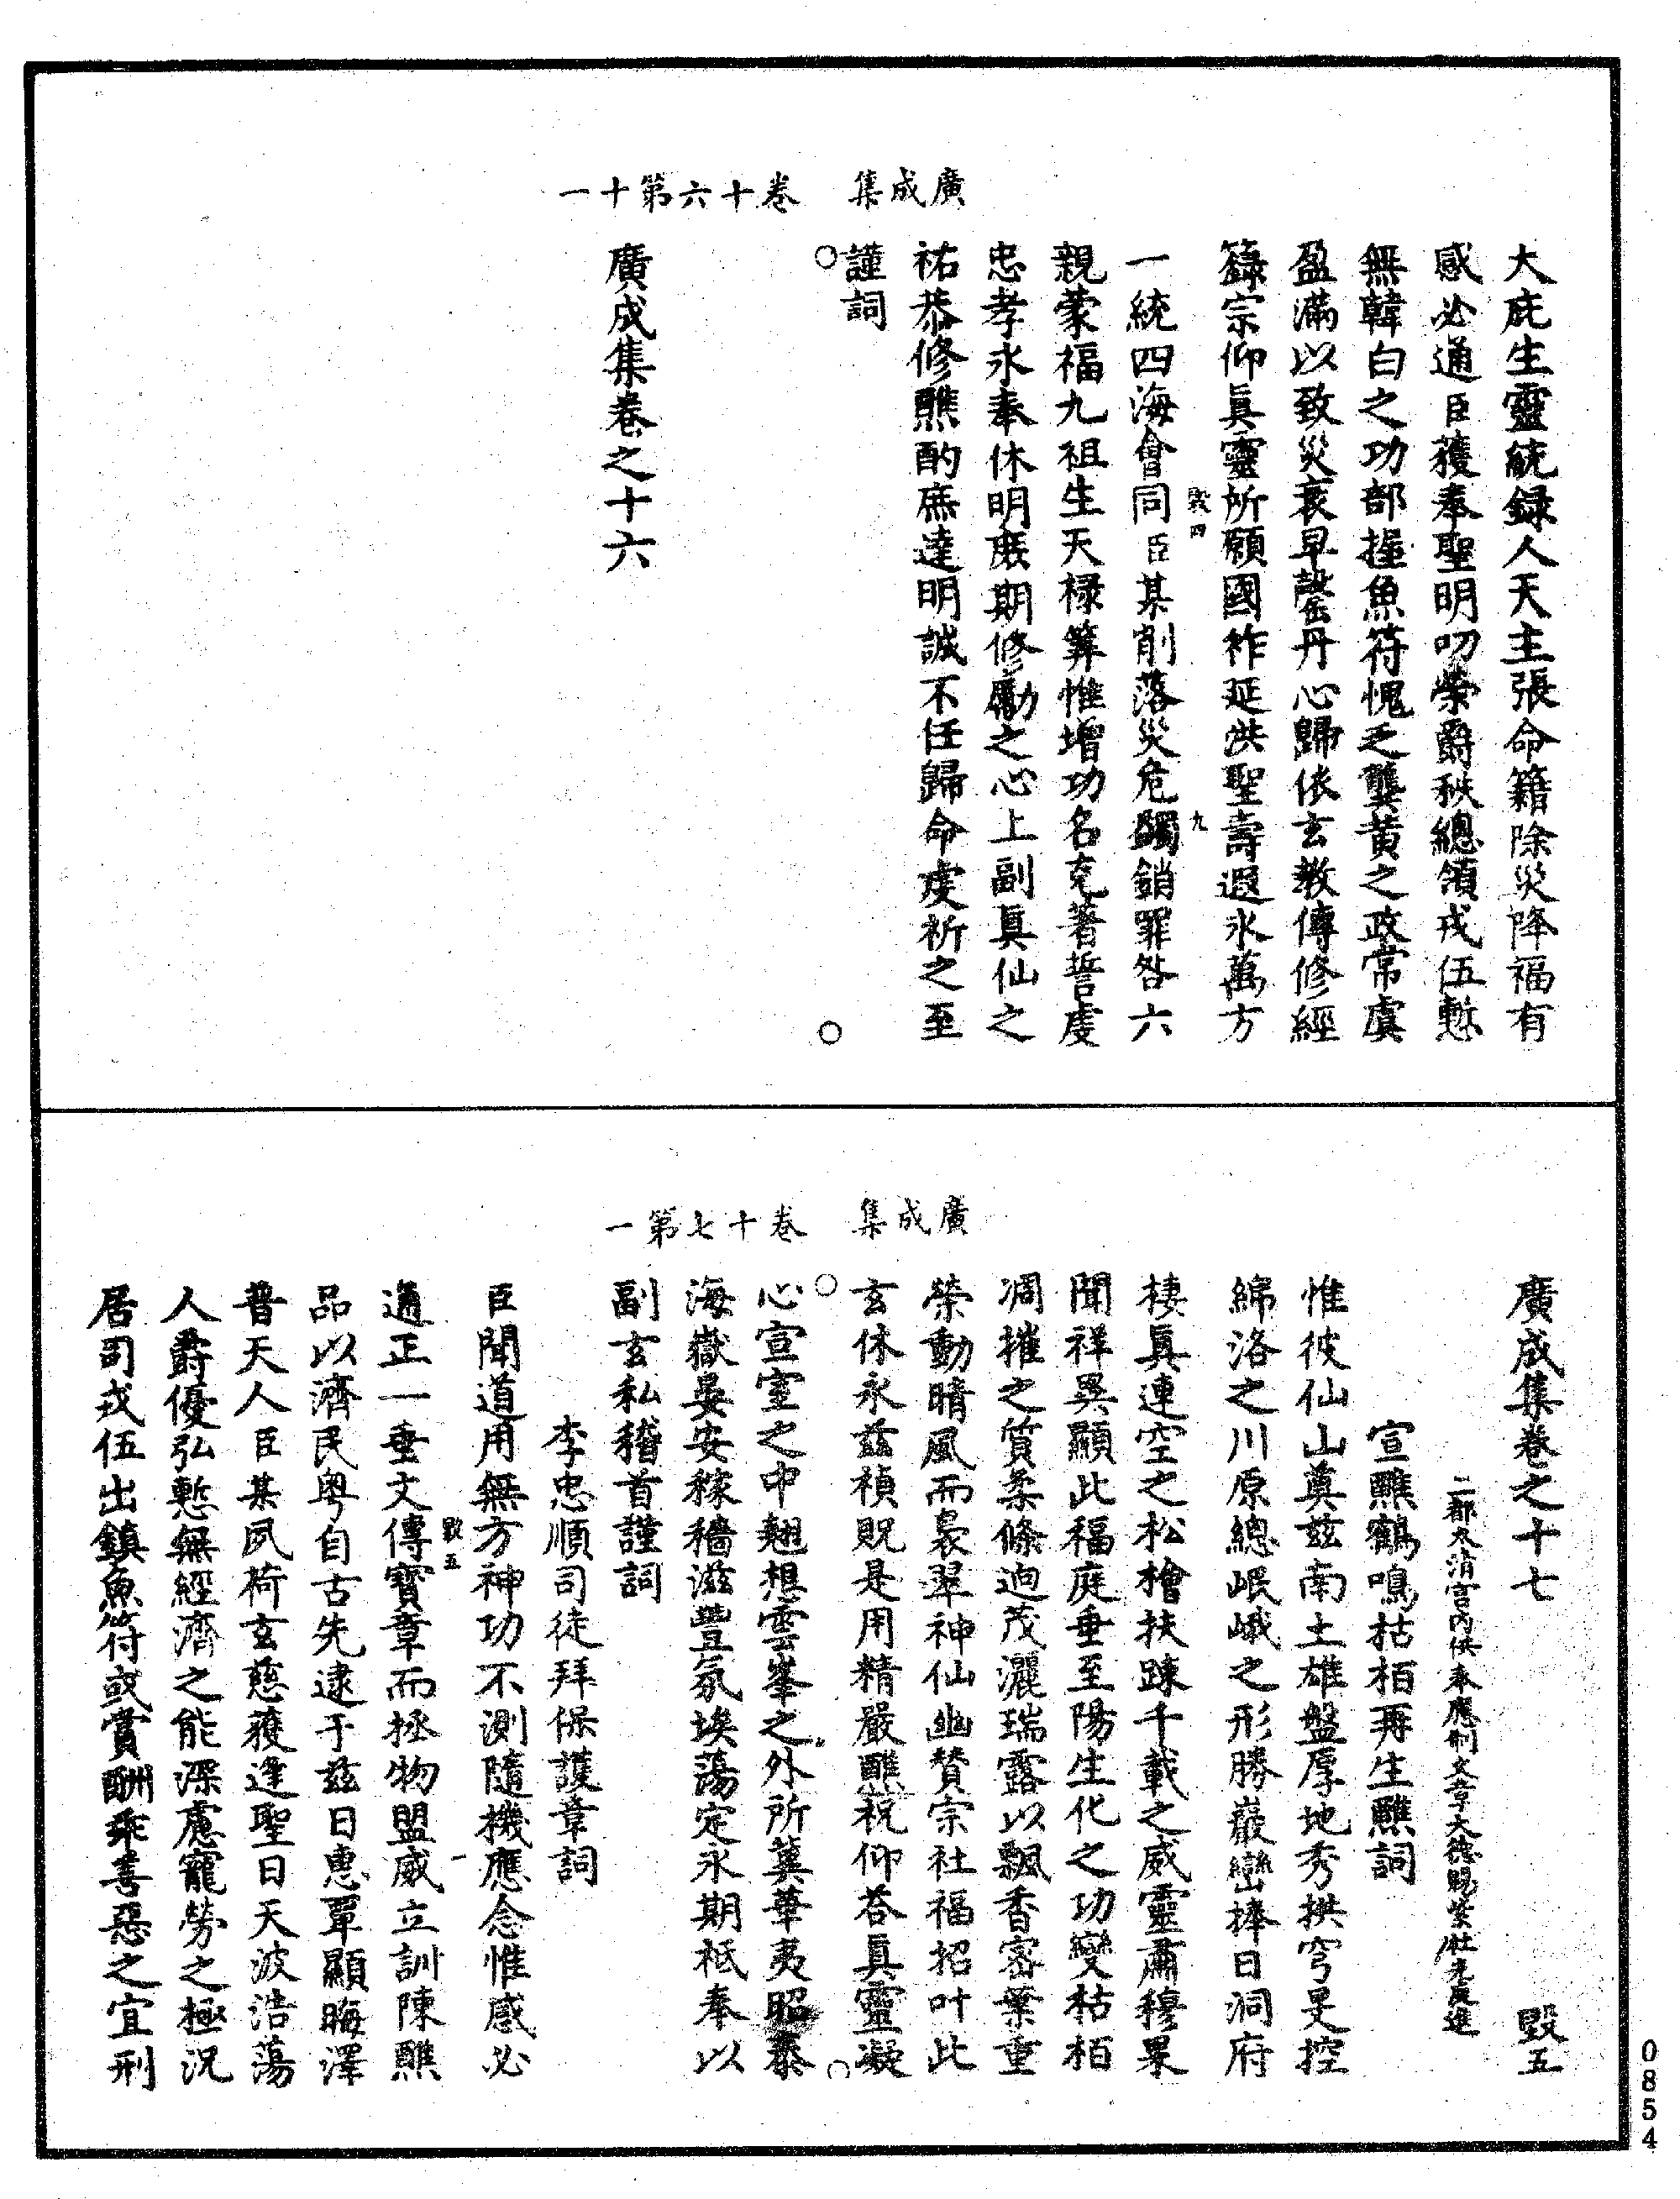 廣成集　卷十六第十一
大庇生靈統録人天主張命籍除災降福有
感必通臣獲奉聖明叨榮爵秩總領戎伍慙
無韓白之功部握魚符愧乏龔黃之政常虞
盈滿以致災衰早罄丹心歸依玄教傳修經
籙宗仰眞靈所願國祚延洪聖壽遐永萬方
毀四　九
一統四海會同臣某削落災危蠲銷罪咎六
親蒙福九祖生天祿筭惟增功名克著誓虔
忠孝永奉休明展期修勵之心上副眞仙之
祐恭修醮酌庶達明誠不任歸命虔祈之至
謹詞
廣成集卷之十六
廣成集　卷十七第一
廣成集卷之十七　毀五
二都太清宮內供奉應制文章大德賜紫杜光庭進
宣醮鶴鳴枯柏再生醮詞
惟彼仙山奠茲南土雄盤厚地秀拱穹旻控
綿洛之川原總岷峨之形勝巖巒捧日洞府
棲眞連空之松檜扶踈千載之威靈肅穆果
聞祥異顯此福庭垂至陽生化之功變枯柏
凋摧之質柔條迥茂灑瑞露以飄香密葉重
榮動晴風而裊翠神仙幽贊宗社福招叶此
玄休永茲禎貺是用精嚴醮祝仰荅眞靈凝
心宣室之中翹想雲峯之外所冀華夷昭泰
海嶽晏安稼穡滋豐氛埃蕩定永期柢奉以
副玄私稽首謹詞
李忠順司徒拜保護章詞
臣聞道用無方神功不測隨機應念惟感必
毀五　一
通正一垂文傳寶章而拯物盟威立訓陳醮
品以濟民粤自古先逮于茲日惠覃顯晦澤
普天人臣某夙荷玄慈獲逢聖日天波浩蕩
人爵優弘慙無經濟之能深慮寵勞之極況
居司戎伍出鎮魚符或賞酬乖善惡之宜刑
0854